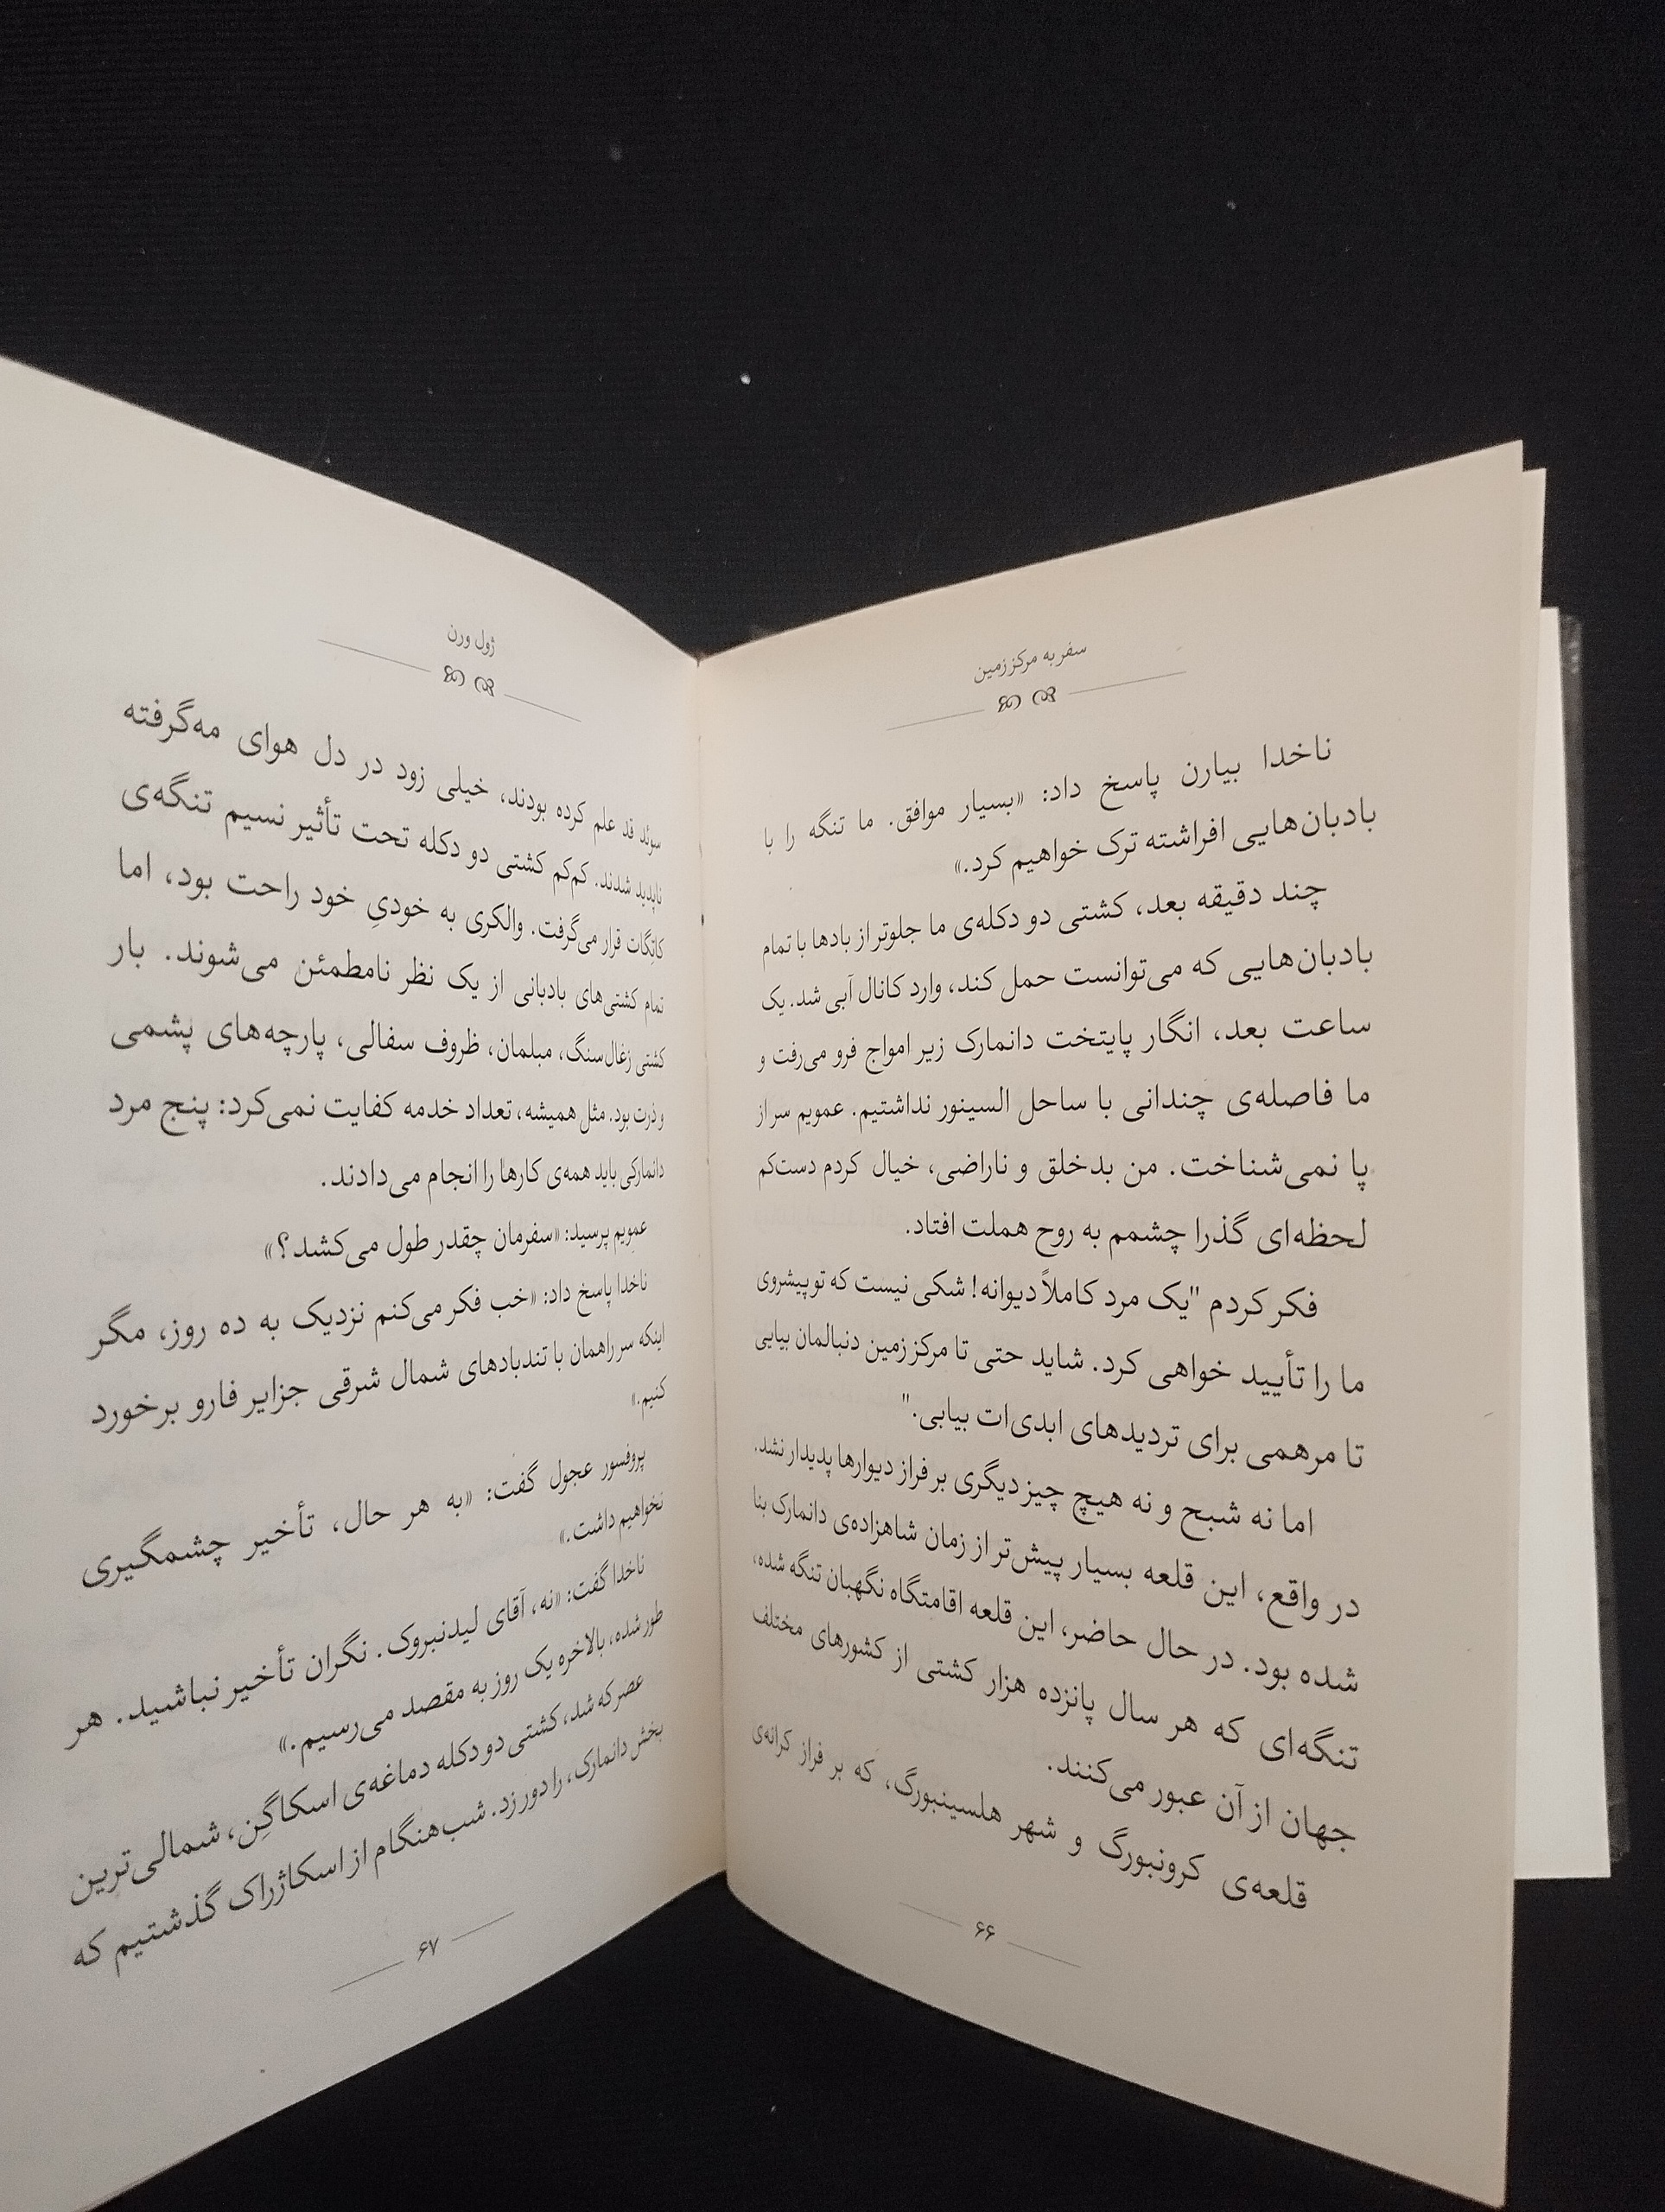 سفر به مرکز زمین
ناخدا بیارن پاسخ داد: «بسیار موافق. ما تنگه را با
بادبان‌هایی افراشته ترک خواهیم کرد.»
چند دقیقه بعد، کشتی دو دکله‌ی ما جلوتر از بادها با تمام
بادبان‌هایی که می‌توانست حمل کند، وارد کانال آبی شد. یک
ساعت بعد، انگار پایتخت دانمارک زیر امواج فرو می‌رفت و
ما فاصله‌ی چندانی با ساحل السینور نداشتیم. عمویم سر از
پا نمی‌شناخت. من بدخلق و ناراضی، خیال کردم دست‌کم
لحظه‌ای گذرا چشمم به روح هملت افتاد.
فکر کردم "یک مرد کاملاً دیوانه! شکی نیست که تو پیشروی
ما را تأیید خواهی کرد. شاید حتی تا مرکز زمین دنبالمان بیایی
تا مرهمی برای تردیدهای ابدی‌ات بیابی."
اما نه شبح و نه هیچ چیز دیگری بر فراز دیوارها پدیدار نشد.
در واقع، این قلعه بسیار پیش‌تر از زمان شاهزاده‌ی دانمارک بنا
شده بود. در حال حاضر، این قلعه اقامتگاه نگهبان تنگه شده،
تنگه‌ای که هر سال پانزده هزار کشتی از کشورهای مختلف
جهان از آن عبور می‌کنند.
قلعه‌ی کرونبورگ و شهر هلسینبورگ، که بر فراز کرانه‌ی
۶۶
ژول ورن
سوئد قد علم کرده بودند، خیلی زود در دل هوای مه‌گرفته
ناپدید شدند. کم‌کم کشتی دو دکله تحت تأثیر نسیم تنگه‌ی
کاتِگات قرار می‌گرفت. والکری به خودیِ خود راحت بود، اما
تمام کشتی‌های بادبانی از یک نظر نامطمئن می‌شوند. بار
کشتی زغال‌سنگ، مبلمان، ظروف سفالی، پارچه‌های پشمی
و ذرت بود. مثل همیشه، تعداد خدمه کفایت نمی‌کرد: پنج مرد
دانمارکی باید همه‌ی کارها را انجام می‌دادند.
عمویم پرسید: «سفرمان چقدر طول می‌کشد؟»
ناخدا پاسخ داد: «خب فکر می‌کنم نزدیک به ده روز، مگر
اینکه سر راهمان با تندبادهای شمال شرقی جزایر فارو برخورد
کنیم.»
پروفسور عجول گفت: «به هر حال، تأخیر چشمگیری
نخواهیم داشت.»
ناخدا گفت: «نه، آقای لیدنبروک. نگران تأخیر نباشید. هر
طور شده، بالاخره یک روز به مقصد می‌رسیم.»
عصر که شد، کشتی دو دکله دماغه‌ی اسکاگِن، شمالی‌ترین
بخش دانمارک، را دور زد. شب‌هنگام از اسکاژراک گذشتیم که
۶۷